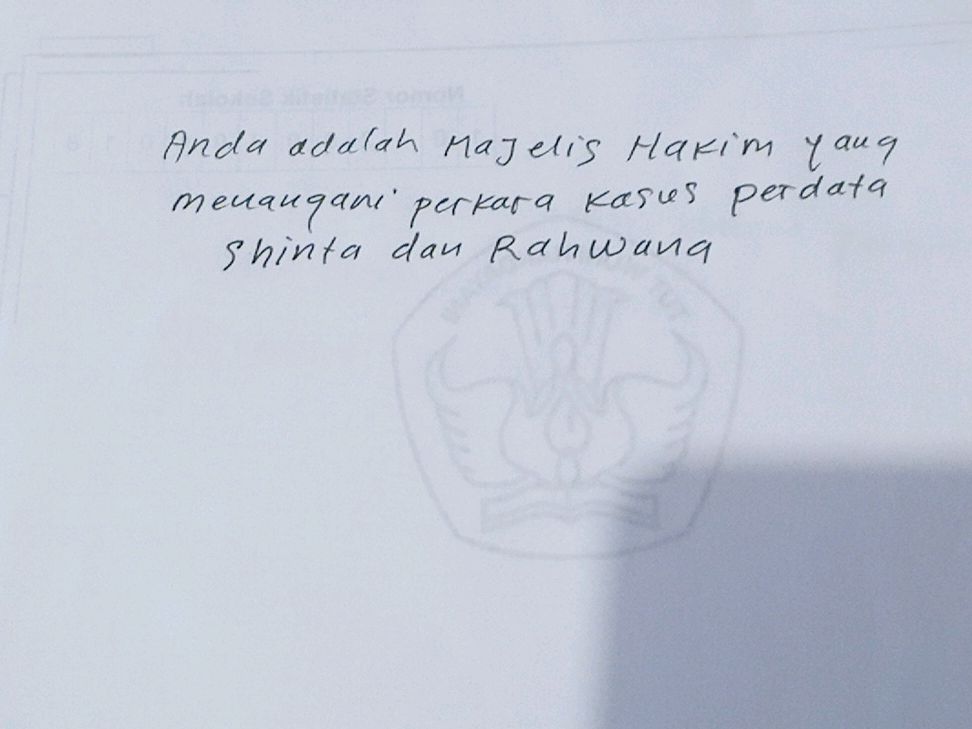 Nomor Statistik Sekolah
Anda adalah Majelis Hakim yang
menangani perkara kasus perdata
Shinta dan Rahwana
TUT